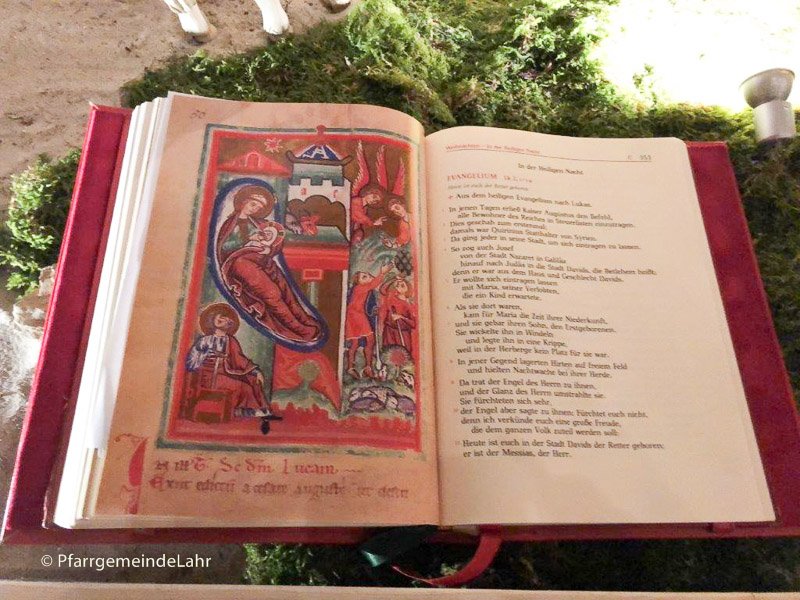 In illo T. Secdm Lucam
Exiit edictu a cesare augusto
Weihnachten – In der Heiligen Nacht
353
In der heiligen Nacht
EVANGELIUM
Heute ist euch der Retter geboren
+ Aus dem heiligen Evangelium nach Lukas.
In jenen Tagen erließ Kaiser Augustus den Befehl,
alle Bewohner des Reiches in Steuerlisten einzutragen.
Dies geschah zum erstenmal;
damals war Quirinius Statthalter von Syrien.
Da ging jeder in seine Stadt, um sich eintragen zu lassen.
So zog auch Josef
von der Stadt Nazaret in Galiläa
hinauf nach Judäa in die Stadt Davids, die Betlehem heißt;
denn er war aus dem Haus und Geschlecht Davids.
Er wollte sich eintragen lassen
mit Maria, seiner Verlobten,
die ein Kind erwartete.
Als sie dort waren,
kam für Maria die Zeit ihrer Niederkunft,
und sie gebar ihren Sohn, den Erstgeborenen.
Sie wickelte ihn in Windeln
und legte ihn in eine Krippe,
weil in der Herberge kein Platz für sie war.
In jener Gegend lagerten Hirten auf freiem Feld
und hielten Nachtwache bei ihrer Herde.
Da trat der Engel des Herrn zu ihnen,
und der Glanz des Herrn umstrahlte sie.
Sie fürchteten sich sehr,
der Engel aber sagte zu ihnen: Fürchtet euch nicht,
denn ich verkünde euch eine große Freude,
die dem ganzen Volk zuteil werden soll:
Heute ist euch in der Stadt Davids der Retter geboren;
er ist der Messias, der Herr.
© PfarrgemeindeLahr